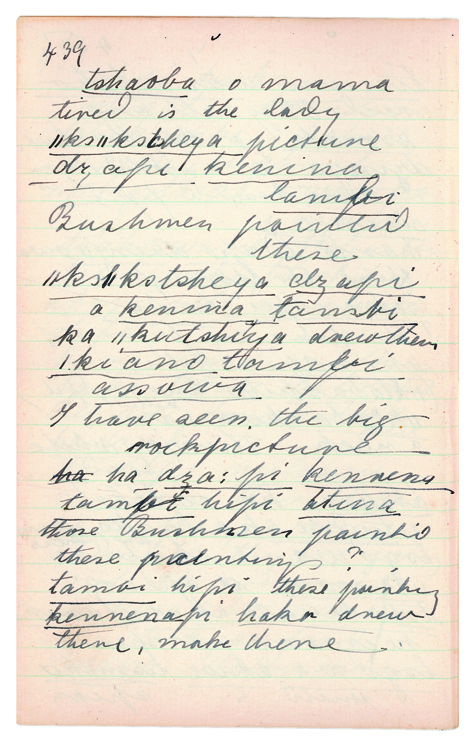 439
tshaoba o mama
tired is the lady
"ks"kstheya picture
dzapi kenina
tambi
Bushmen painted
these
"ks"kstsheya dzapi
a kenina tambi
ka "kutshiya drew them
tambi
assowa
I have seen the big
rockpicture
ha ha dza: pi kennena
tambi hipi
those Bushmen painted
these painting ?
tambi hipi these painting
kennenapi haka drew
there, make there